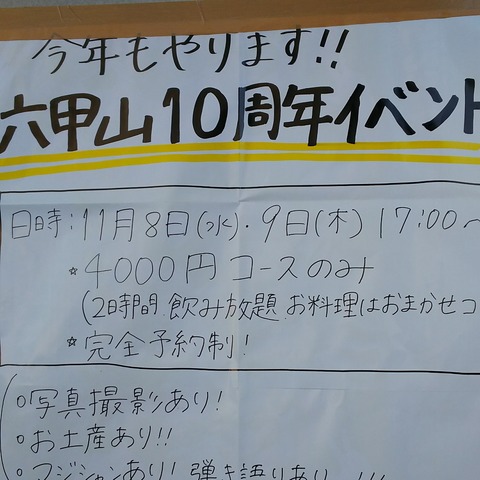 今年もやります!!
六甲山10周年イベント
日時:11月8日(水)・9日(木)17:00〜
☆4000円コースのみ
(2時間飲み放題お料理はおまかせコ
☆完全予約制!
○写真撮影あり!
○お土産あり!!
○マジシャンあり!弾き語りあり…!!!